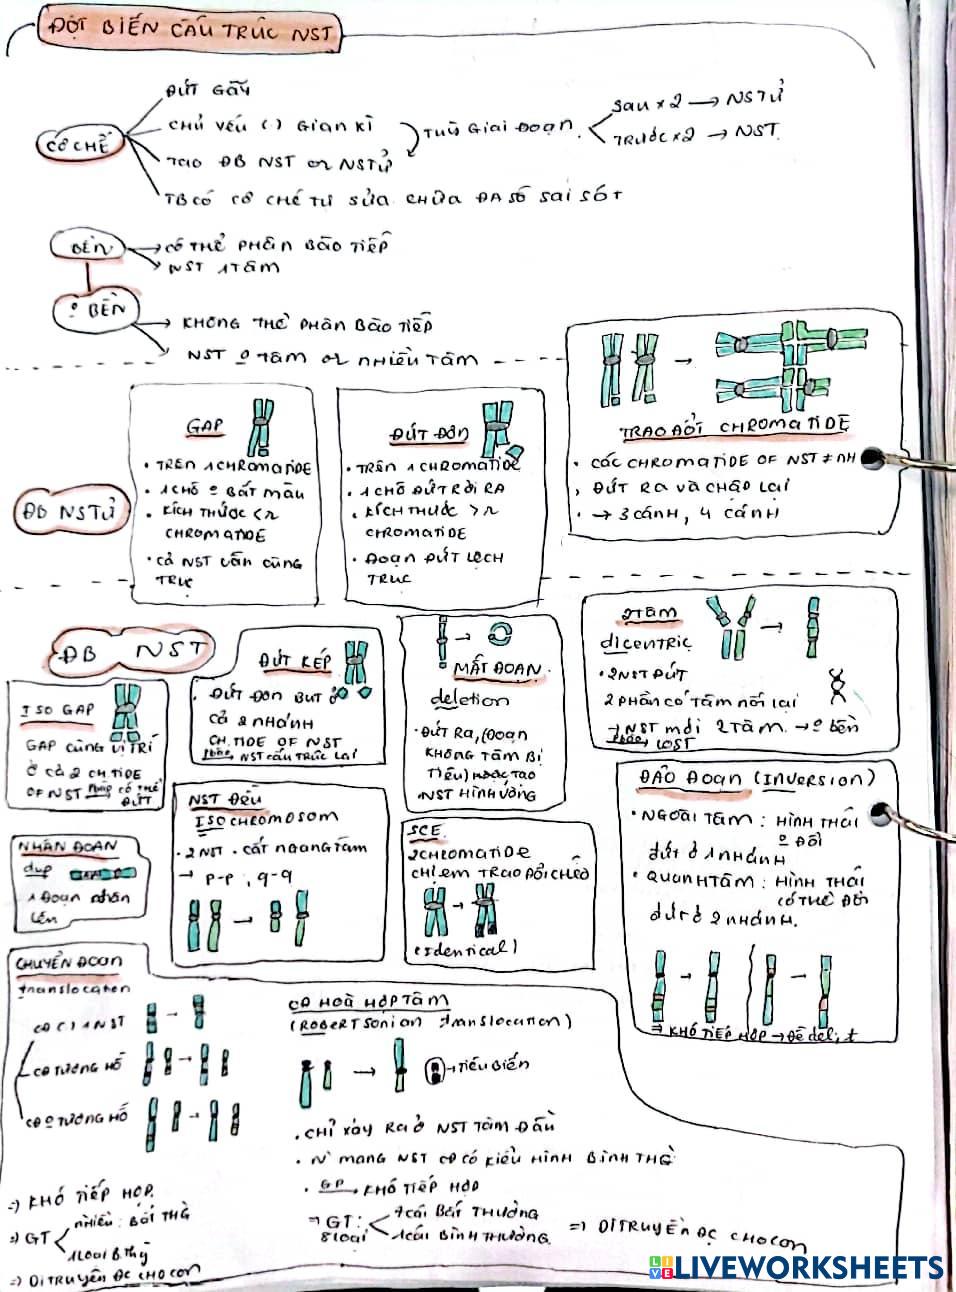 ĐỘT BIẾN CẤU TRÚC NST
CƠ CHẾ
ĐỨT GÃY
CHỦ YẾU ( ) GIAN KÌ
TẠO ĐB NST or NSTỬ
TB CÓ CƠ CHẾ TỰ SỬA CHỮA ĐA SỐ SAI SÓT
TUỲ GIAI ĐOẠN
SAU x2 → NSTỬ
TRƯỚC x2 → NST
BỀN
CÓ THỂ PHÂN BÀO TIẾP
NST 1 TÂM
º BỀN
KHÔNG THỂ PHÂN BÀO TIẾP
NST º TÂM or NHIỀU TÂM
ĐB NSTỬ
GAP
• TRÊN 1 CHROMATIDE
• 1 CHỖ º BẮT MÀU
• KÍCH THƯỚC < r
CHROMATIDE
• CẢ NST VẪN CÙNG
TRỤC
ĐỨT ĐƠN
• TRÊN 1 CHROMATIDE
• 1 CHỖ ĐỨT RỜI RA
• KÍCH THƯỚC > r
CHROMATIDE
• ĐOẠN ĐỨT LỆCH
TRỤC
TRAO ĐỔI CHROMATIDE
• CÁC CHROMATIDE OF NST ≠ NH
, ĐỨT RA VÀ CHẬP LẠI
• → 3 CÁNH, 4 CÁNH
ĐB NST
ISO GAP
GAP CÙNG VỊ TRÍ
Ở CẢ 2 CH.TIDE
OF NST CÓ THỂ
ĐỨT
ĐỨT KÉP
• ĐỨT ĐƠN BUT Ở
CẢ 2 NHÁNH
CH.TIDE OF NST
NST CẤU TRÚC LẠI
MẤT ĐOẠN
deletion
• ĐỨT RA, (ĐOẠN
KHÔNG TÂM BỊ
TIÊU) HOẶC TẠO
NST HÌNH VÒNG
2 TÂM
dicentric
• 2 NST ĐỨT
2 PHẦN CÓ TÂM NỐI LẠI
→ NST MỚI 2 TÂM → º bền
LOST
NHÂN ĐOẠN
dup
1 ĐOẠN NHÂN
LÊN
NST ĐỀU
ISOCHROMOSOM
• 2 NST . CẮT NGANG TÂM
→ p-p ; q-q
SCE
2 CHROMATIDE
CHỊ EM TRAO ĐỔI CHÉO
(Identical)
ĐẢO ĐOẠN (INVERSION)
• NGOÀI TÂM : HÌNH THÁI
º ĐỔI
ĐỨT Ở 1 NHÁNH
• QUANH TÂM : HÌNH THÁI
CÓ THỂ ĐỔI
ĐỨT Ở 2 NHÁNH.
⇒ KHÓ TIẾP HỢP → Dễ del, t
CHUYỂN ĐOẠN
translocation
CĐ ( ) 1 NST
CĐ TƯƠNG HỖ
CĐ º TƯƠNG HỖ
⇒ KHÓ TIẾP HỢP.
⇒ GT
NHIỀU : BẤT THG
1 LOẠI B THG
⇒ DI TRUYỀN ĐC CHO CON
CĐ HOÀ HỢP TÂM
(ROBERTSONIAN translocation)
→ TIÊU BIẾN
• CHỈ XẢY RA Ở NST TÂM ĐẦU
• N' MANG NST CĐ CÓ KIỂU HÌNH BÌNH THG
• GP → KHÓ TIẾP HỢP
⇒ GT :
8 LOẠI
7 CÁI BẤT THƯỜNG
1 CÁI BÌNH THƯỜNG
⇒ DI TRUYỀN ĐC CHO CON
LIVEWORKSHEETS